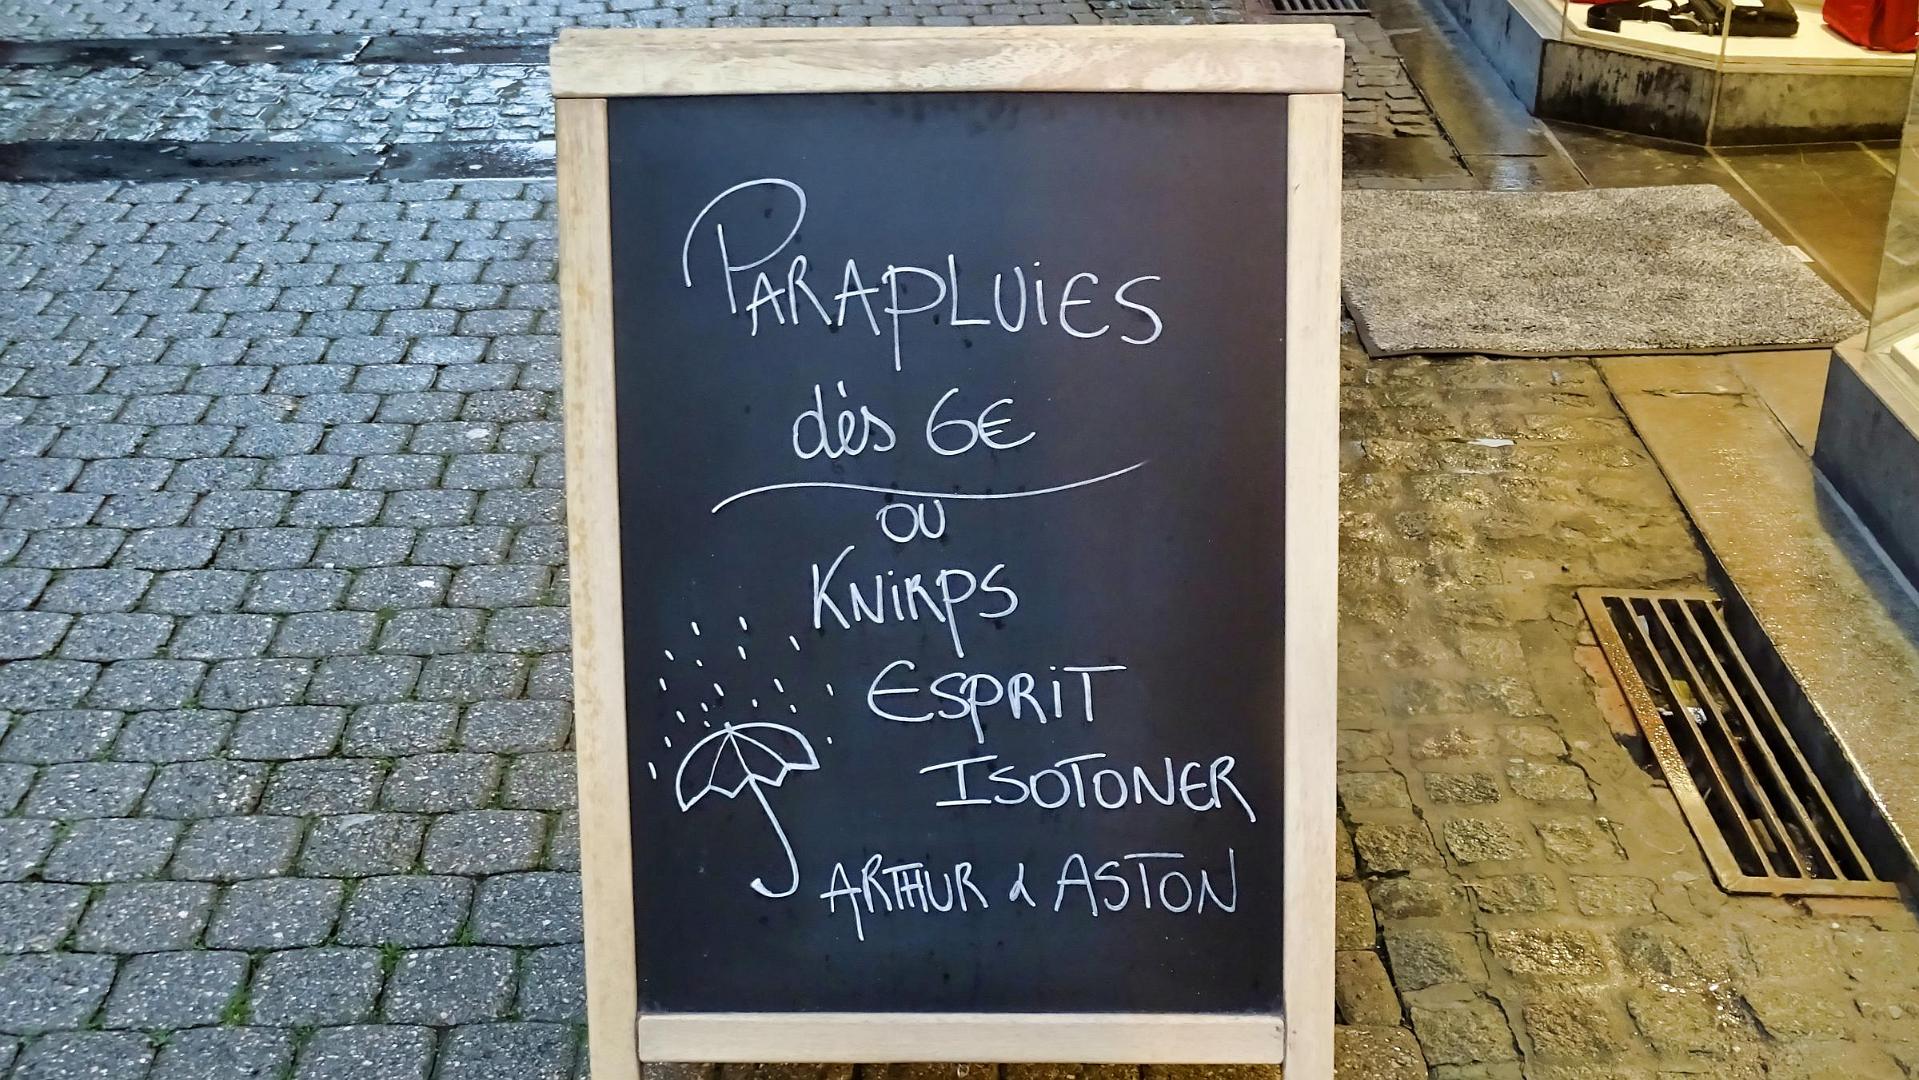 PARAPLUiES
dès 6€
OU
KNiRPS
ESPRiT
ISOTONER
ARTHUR & ASTON